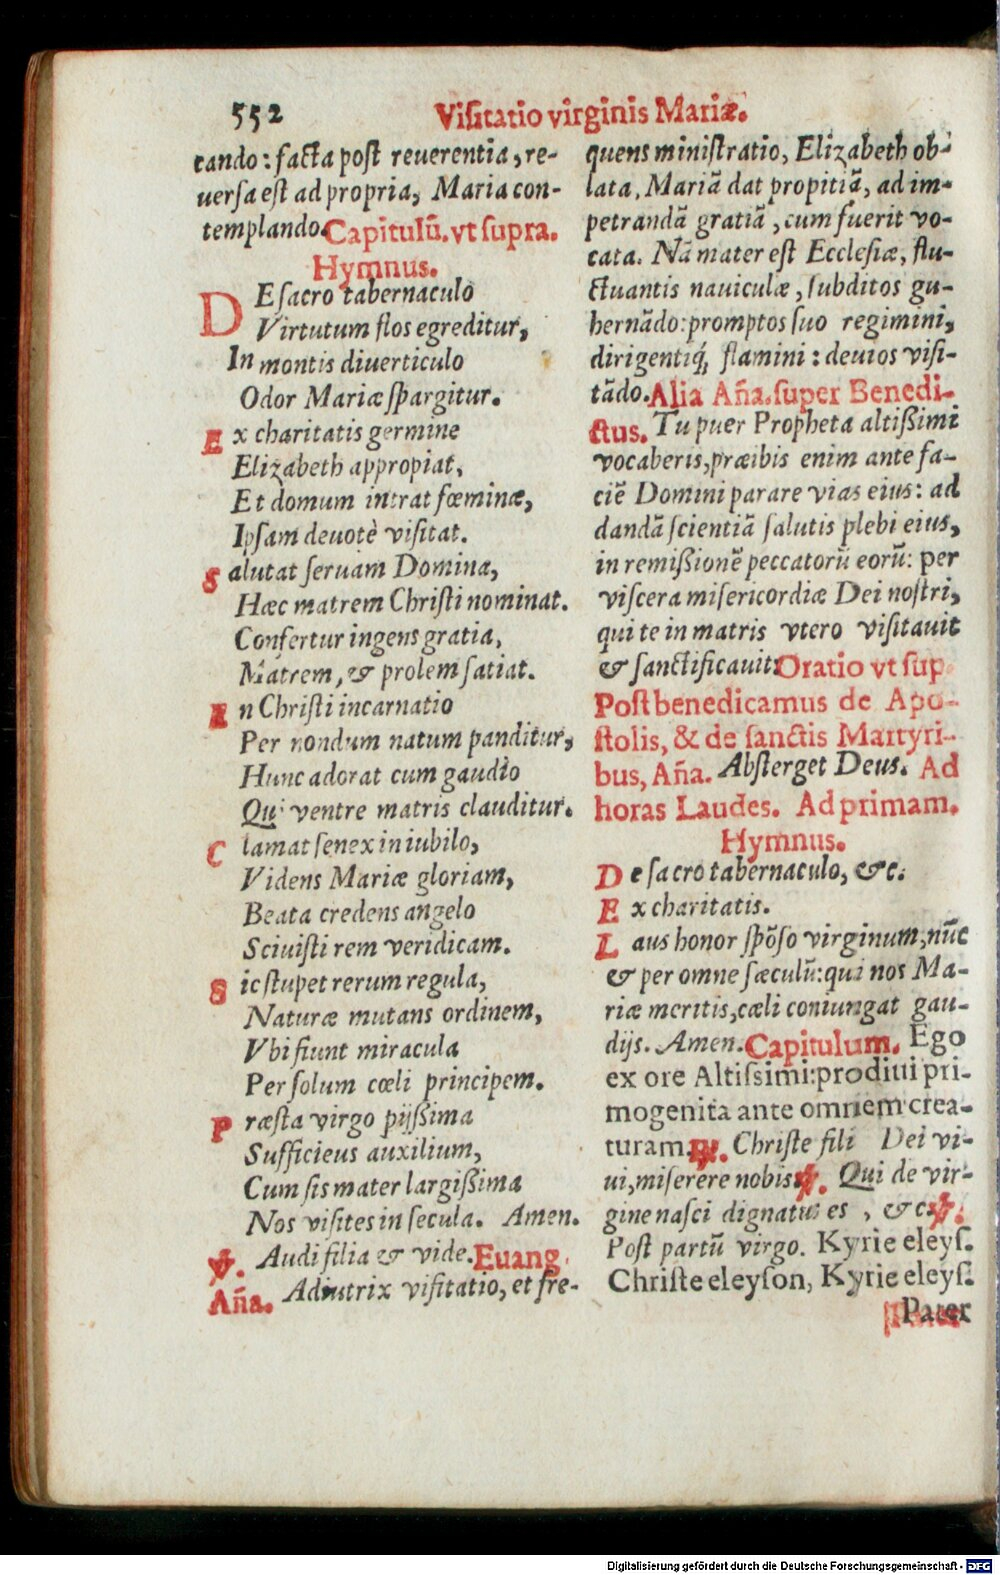 552 Visitatio virginis Mariæ.
tando: facta post reuerentia, re-
uersa est ad propria, Maria con-
templando. Capitulū. vt supra.
Hymnus.
DE sacro tabernaculo
Virtutum flos egreditur,
In montis diuerticulo
Odor Mariæ spargitur.
Ex charitatis germine
Elizabeth appropiat,
Et domum intrat fœminæ,
Ipsam deuotè visitat.
Salutat seruam Domina,
Hæc matrem Christi nominat.
Confertur ingens gratia,
Matrem, & prolem satiat.
En Christi incarnatio
Per nondum natum panditur,
Hunc adorat cum gaudio
Qui ventre matris clauditur.
Clamat senex in iubilo,
Videns Mariæ gloriam,
Beata credens angelo
Sciuisti rem veridicam.
Sic stupet rerum regula,
Naturæ mutans ordinem,
Vbi fiunt miracula
Per solum cœli principem.
Præsta virgo pijssima
Sufficieus auxilium,
Cum sis mater largissima
Nos visites in secula. Amen.
℣. Audi filia & vide. Euang.
Aña. Adiutrix visitatio, et fre-
quens ministratio, Elizabeth ob-
lata, Mariā dat propitiā, ad im-
petrandā gratiā, cum fuerit vo-
cata. Nā mater est Ecclesiæ, flu-
ctuantis nauiculæ, subditos gu-
bernādo: promptos suo regimini,
dirigentiq́; flamini: deuios visi-
tādo. Alia Aña. super Benedi-
ctus. Tu puer Propheta altissimi
vocaberis, præibis enim ante fa-
ciē Domini parare vias eius: ad
dandā scientiā salutis plebi eius,
in remissionē peccatorū eorū: per
viscera misericordiæ Dei nostri,
qui te in matris vtero visitauit
& sanctificauit: Oratio vt sup.
Post benedicamus de Apo-
stolis, & de sanctis Martyri-
bus, Aña. Absterget Deus. Ad
horas Laudes. Ad primam.
Hymnus.
De sacro tabernaculo, &c.
Ex charitatis.
Laus honor spōso virginum, nūc
& per omne sæculū: qui nos Ma-
riæ meritis, cæli coniungat gau-
dijs. Amen. Capitulum. Ego
ex ore Altissimi: prodiui pri-
mogenita ante omnem crea-
turam. ℟. Christe fili Dei vi-
ui, miserere nobis. ℣. Qui de vir-
gine nasci dignatus es, &c. ℣.
Post partū virgo. Kyrie eleys.
Christe eleyson, Kyrie eleys.
Pater
Digitalisierung gefördert durch die Deutsche Forschungsgemeinschaft - DFG